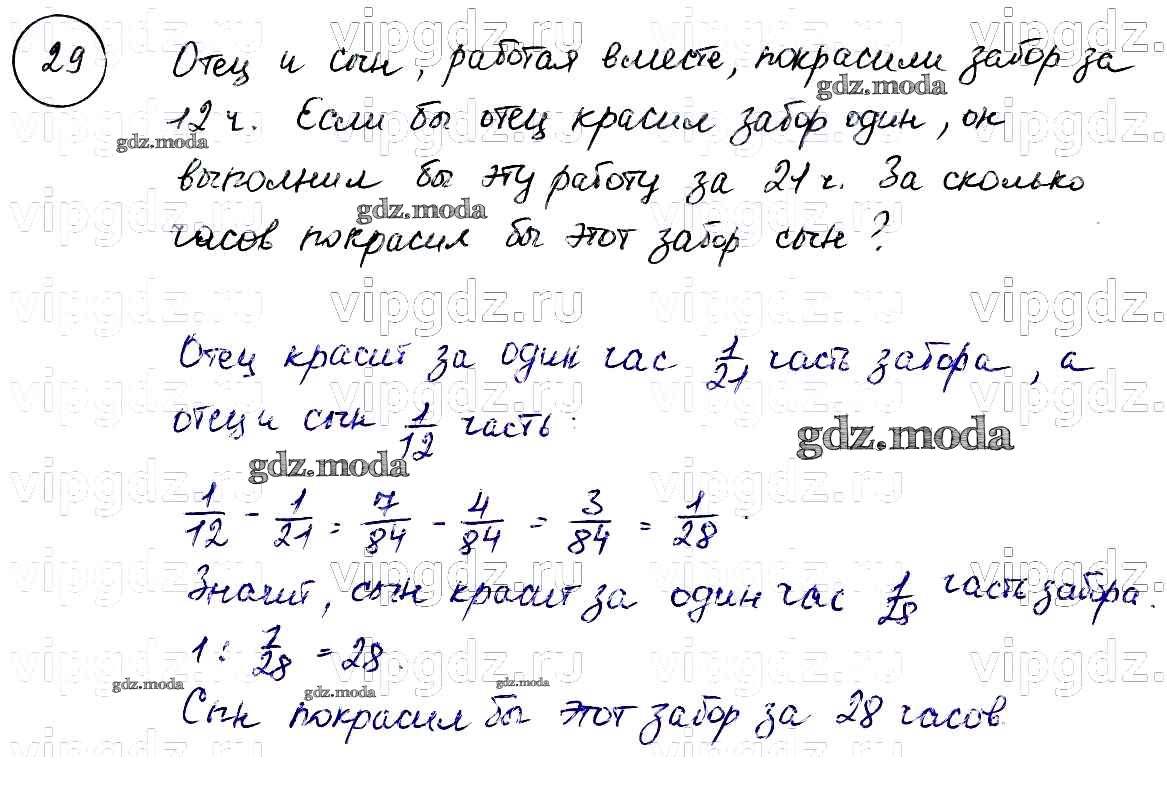 29
Отец и сын, работая вместе, покрасили забор за
12 ч. Если бы отец красил забор один, он
выполнил бы эту работу за 21 ч. За сколько
часов покрасил бы этот забор сын?
Отец красит за один час 1/21 часть забора, а
отец и сын 1/12 часть:
1/12 - 1/21 = 7/84 - 4/84 = 3/84 = 1/28.
Значит, сын красит за один час 1/28 часть забора.
1 : 1/28 = 28.
Сын покрасил бы этот забор за 28 часов.
gdz.moda
vipgdz.ru